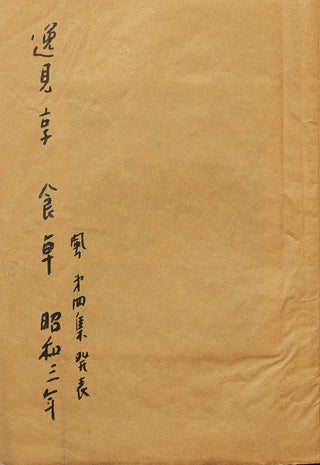 逸見享 食卓 昭和三年
風 第四集発表